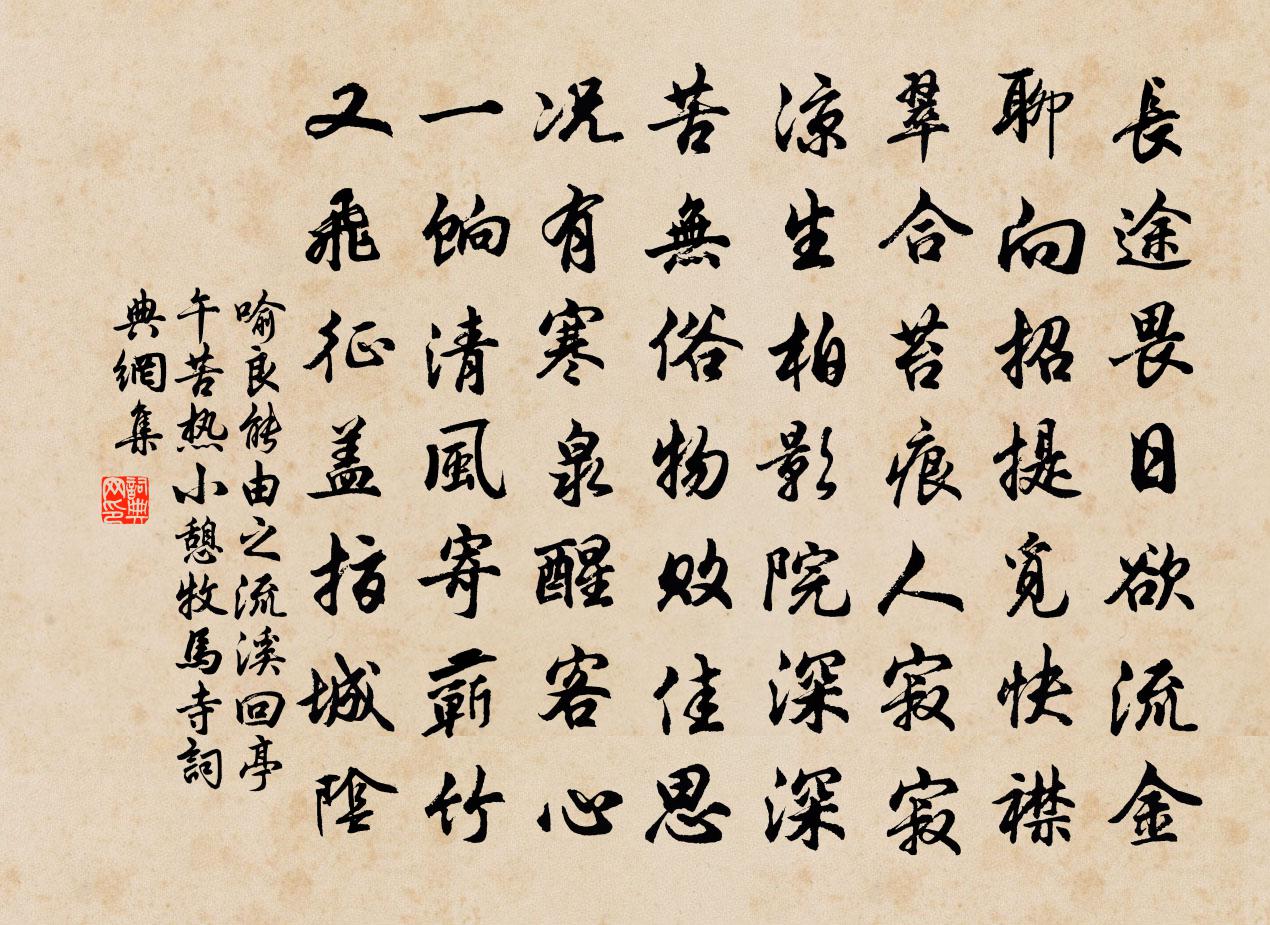 長途畏日欲流金
聊向招提覓快襟
翠合苔痕人寂寂
凉生柏影院深深
苦無俗物敗佳思
况有寒泉醒客心
一餉清風寄蘄竹
又飛征盖指城陰
喻良能由之流溪回亭
午苦热小憩牧馬寺詞
典網集
詞典
网印